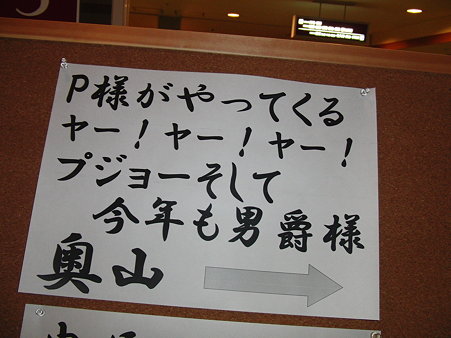 P様がやってくる
ヤー！ヤー！ヤー！
プジョーそして
今年も男爵様
奥山